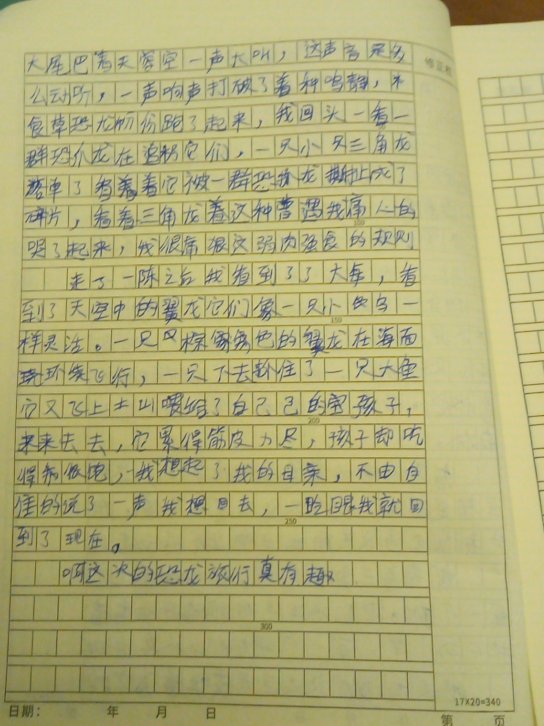 大尾巴着天空一声大叫，这声音是多
么动听，一声响声打破了着种鸣静，不
食草恐龙纷份跑了起来，我回头一看一
群恐爪龙在追它们，一只小只三角龙
落单了看着它被一群恐爪龙撕成了
碎片，看着三角龙着这种曹遇我痛心的
哭了起来，我很痛狠这弱肉强食的规则
走了一陈之后我看到了了大海，看
到了天空中的翼龙它们像一只小鸟一
样灵活。一只棕色的翼龙在海面
环绕飞行，一只下去抓住了一只大鱼
它又飞上山喂给了自己己的孩子，
来来去去，它累得筋皮力尽，孩子却吃
得饱，我想起了我的母亲，不由自
住的说了一声我想回去，一眨眼我就回
到了现在。
啊这次的恐龙旅行真有趣
100
150
200
250
300
17X20=340
日期： 年 月 日 第 页